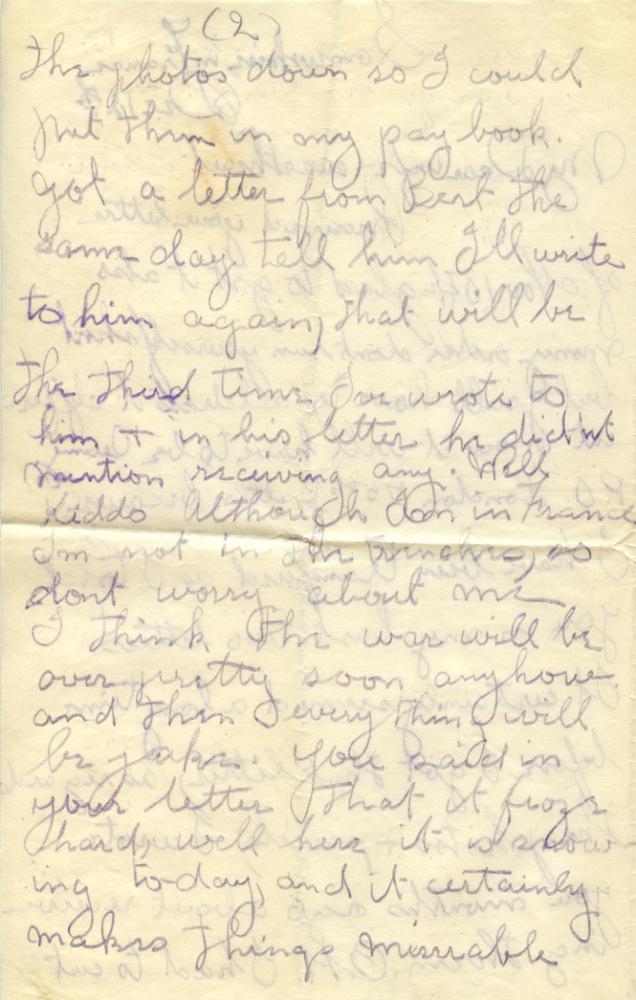 (2)
the photos down so I could
put them in my pay book.
Got a letter from Bert the
same day, tell him I'll write
to him again, that will be
the third time I've wrote to
him + in his letter he did'nt
mention receiving any. Well
Kiddo Although I'm in France
I'm not in the trenches, so
dont worry about me
I think the war will be
over pretty soon anyhow
and then everything will
be jake. You said in
your letter that it froze
hard, well here it is snow-
ing to-day, and it certainly
makes things miserable